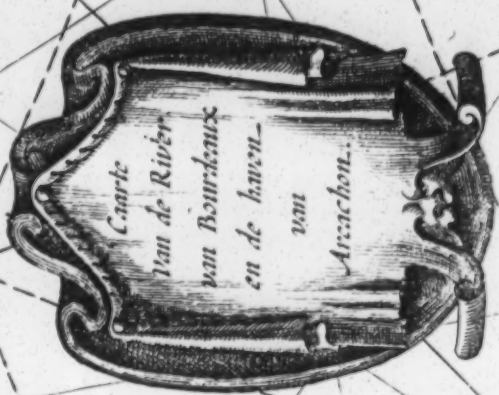 Caarte
Van de Rivier
van Bourdeaux
en de haven
van
Arcachon.